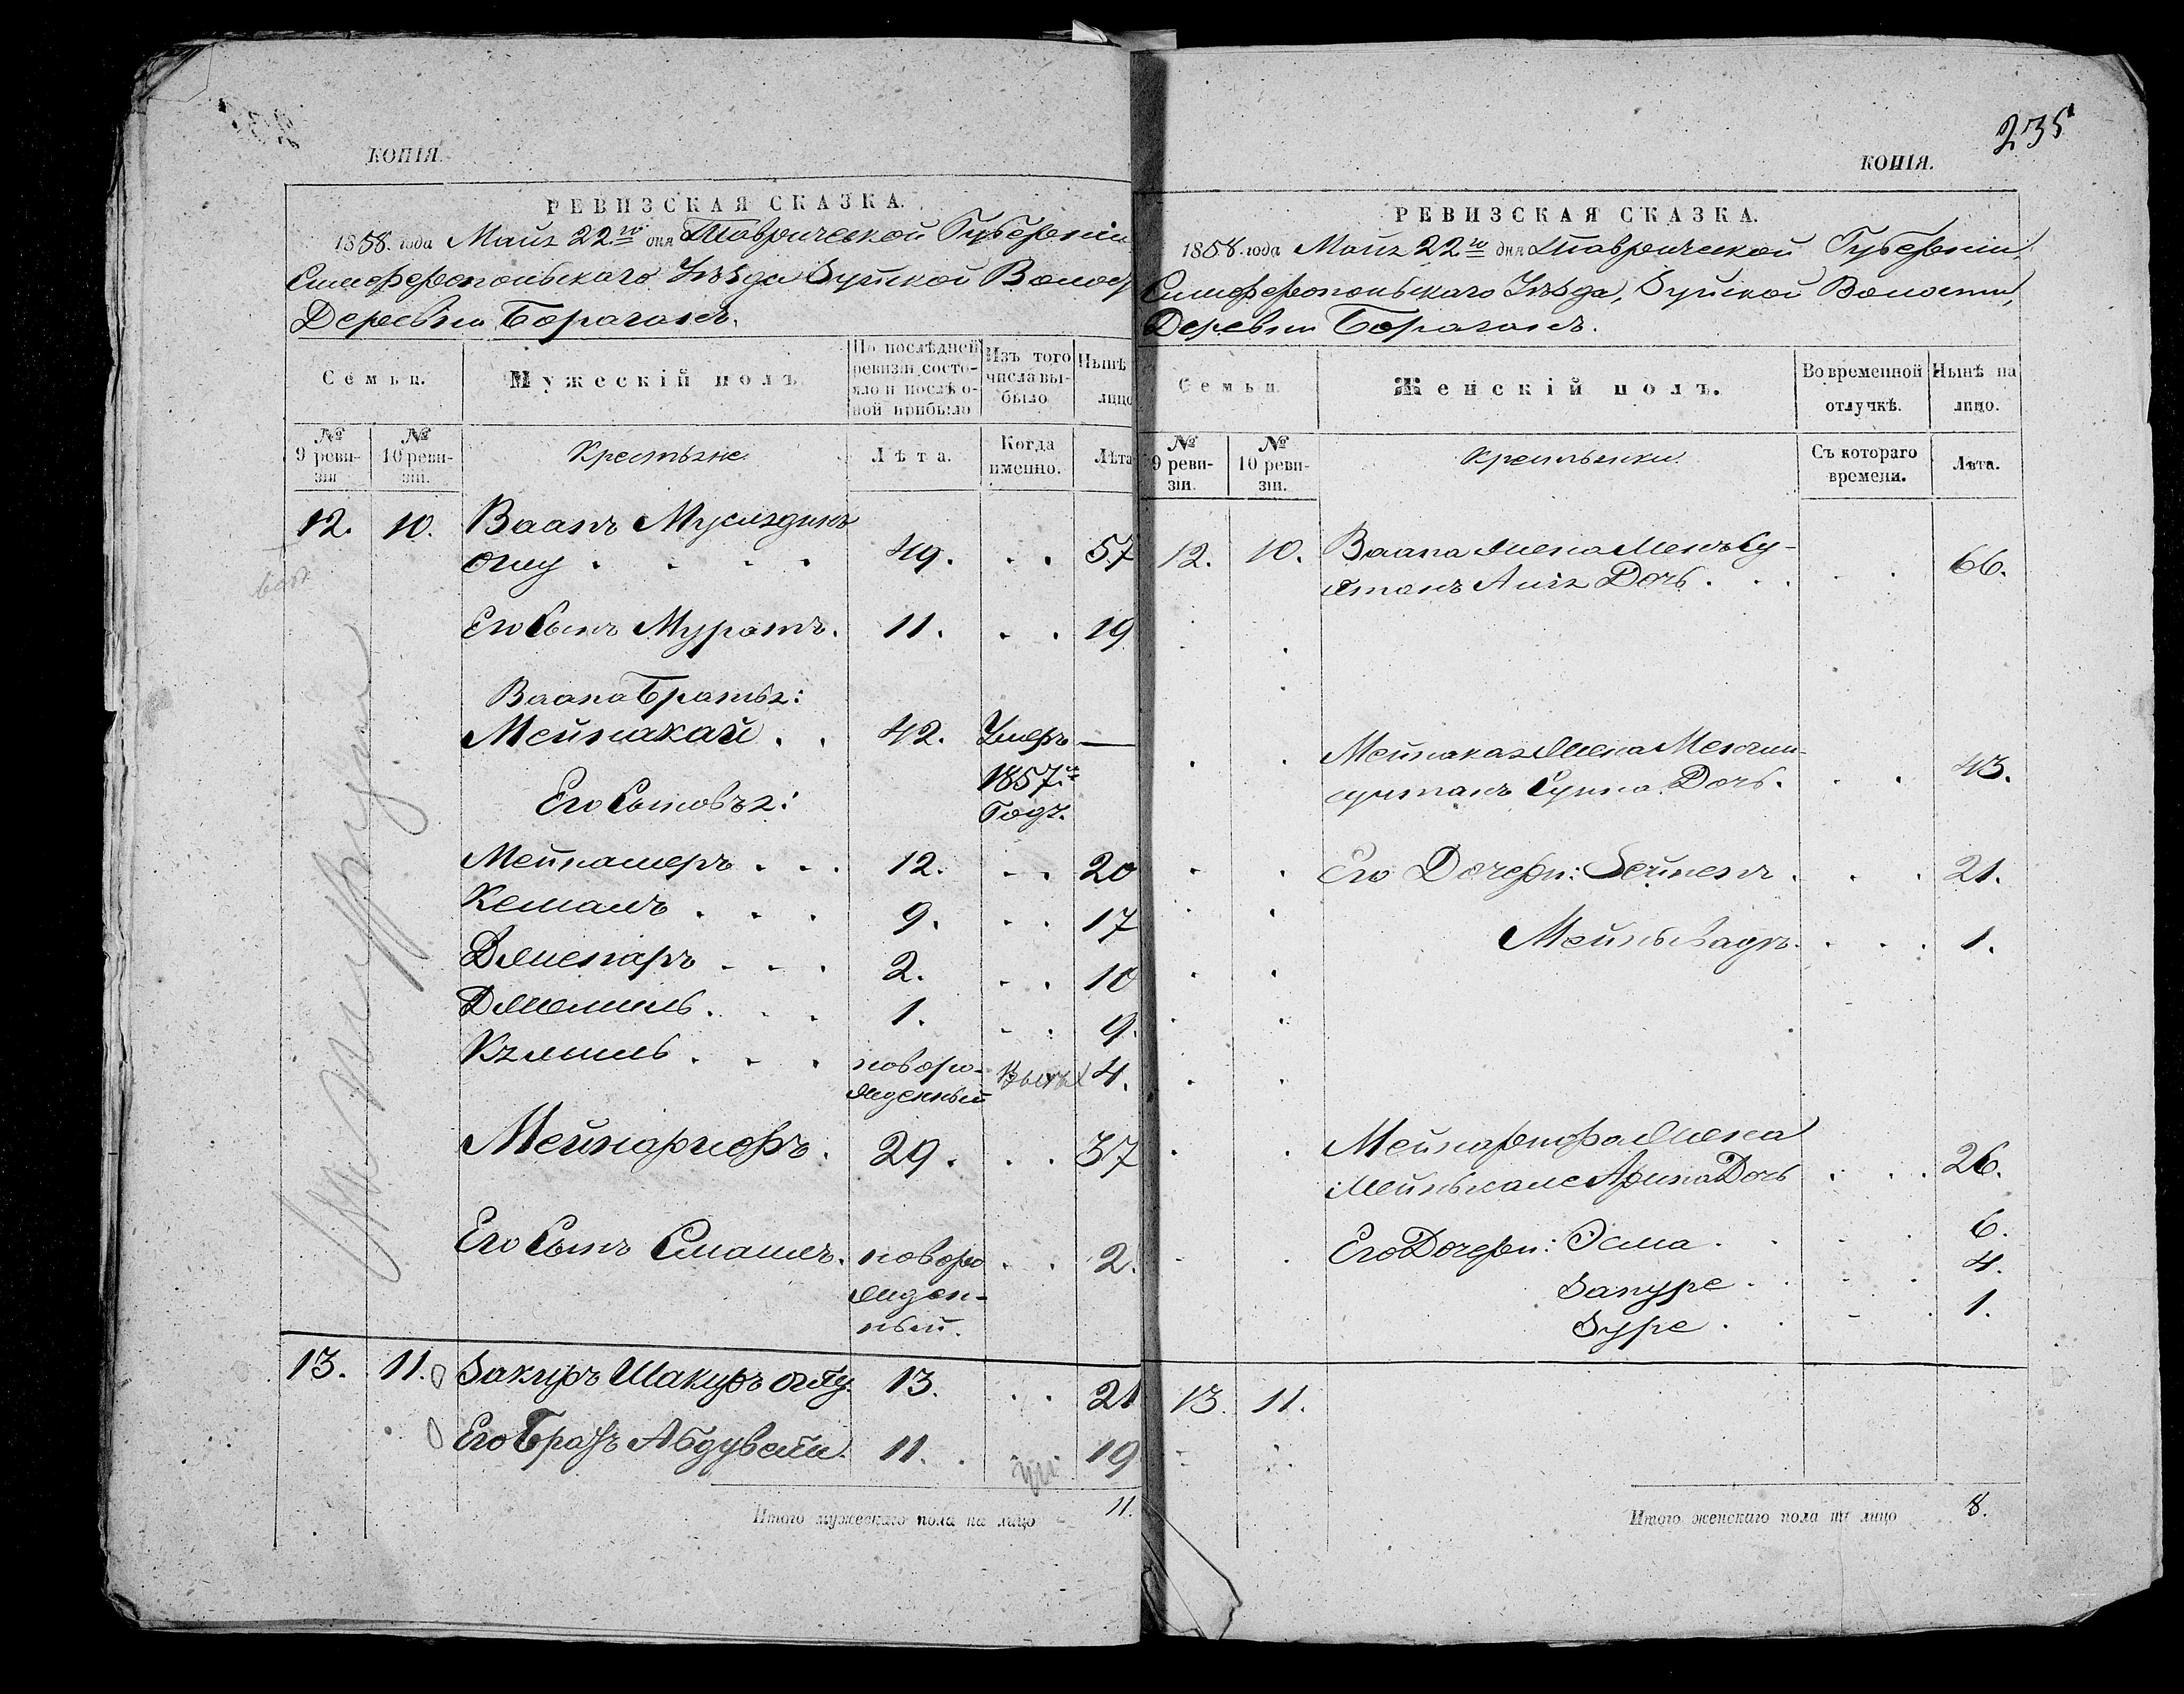 КОПІЯ.
РЕВИЗСКАЯ СКАЗКА.
1858. года Мая 22го дня Таврической Губерніи
Симферопольскаго Уѣзда Зуйской Волос
Деревни Борагань.
Семьи.
Мужескій полъ.
По послѣдней ревизіи состояло и послѣ оной прибыло
Изъ того числа выбыло
Нынѣ лицо
№ 9 ревизіи
№ 10 ревизіи.
Крестьяне.
Лѣта.
Когда именно.
Лѣта
12. 10. Ваапъ Муслядинъ
оглу . . . . 49. . . 57
Его Сынъ Муратъ. 11. . . 19
Ваапа Братья:
Мейнакай . . 42. Умеръ —
1857го
Его Сыновья: Годъ.
Мейнашеръ . . . 12. . . 20
Кемаль . . . 9. . . 17
Джепаръ . . . 2. . . 10
Джемиль. . . 1. . . 9.
Кямиль . . . новоро- 4.
жденный
Мейнарифъ. 29. . . 37
Его Сынъ Смаилъ. новоро . . 2.
жден-
ный.
13. 11. Закиръ Шакиръ оглу. 13. . . 21
Его Братъ Абдувели. 11. . . 19
Итого мужескаго пола на лицо 11.
235
КОПІЯ.
РЕВИЗСКАЯ СКАЗКА.
1858. года Мая 22го дня Таврической Губерніи,
Симферопольскаго Уѣзда, Зуйской Волости,
Деревни Борагань.
Семьи
Женскій полъ.
Во временной отлучкѣ.
Нынѣ на лицо.
№ 9 ревизіи.
№ 10 ревизіи.
Крестьянки.
Съ котораго времени.
Лѣта.
12. 10. Ваапа Жена Менъ Су-
лтанъ Алія Дочь . . . . 66.
Мейнакая Жена Менли-
султанъ Дочь. . . 43.
Его Дочери: Зейнепъ . . . 21.
1.
Жена
Дочь . . . 26.
Его Дочери: Эсма . . . 6.
Запуре . . . 4.
Зуре . . . 1.
13. 11.
Итого женскаго пола на лицо 8.